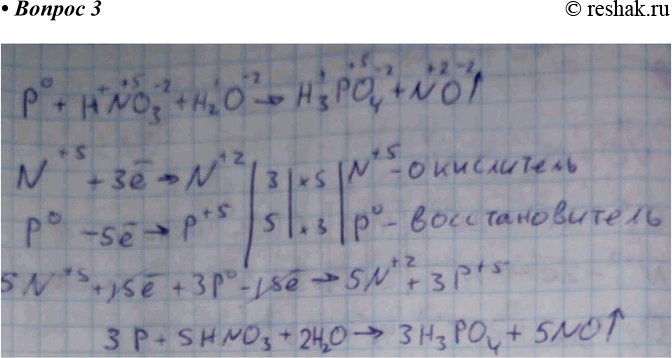 • Вопрос 3
© reshak.ru
P⁰ + H⁺N⁺⁵O₃⁻² + H₂⁺O⁻² → H₃⁺P⁺⁵O₄⁻² + N⁺²O⁻²↑
N⁺⁵ + 3ē → N⁺² | 3 | ×5 | N⁺⁵ - окислитель
P⁰ - 5ē → P⁺⁵ | 5 | ×3 | P⁰ - восстановитель
5N⁺⁵ + 15ē + 3P⁰ - 15ē → 5N⁺² + 3P⁺⁵
3P + 5HNO₃ + 2H₂O → 3H₃PO₄ + 5NO↑